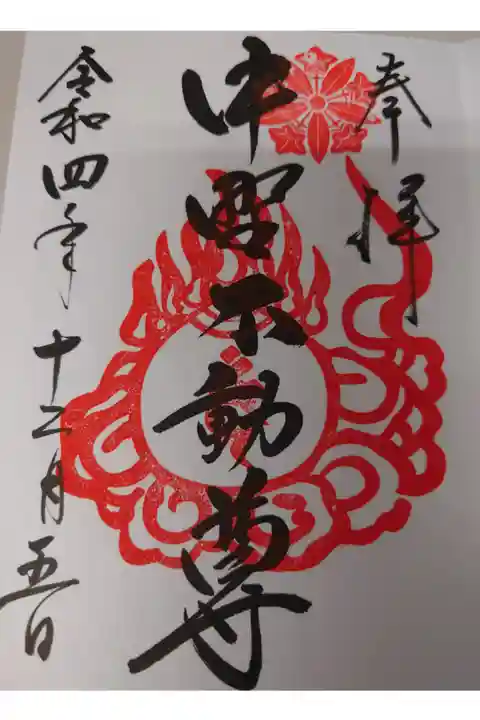 奉拝
中野不動尊
令和四年十二月五日